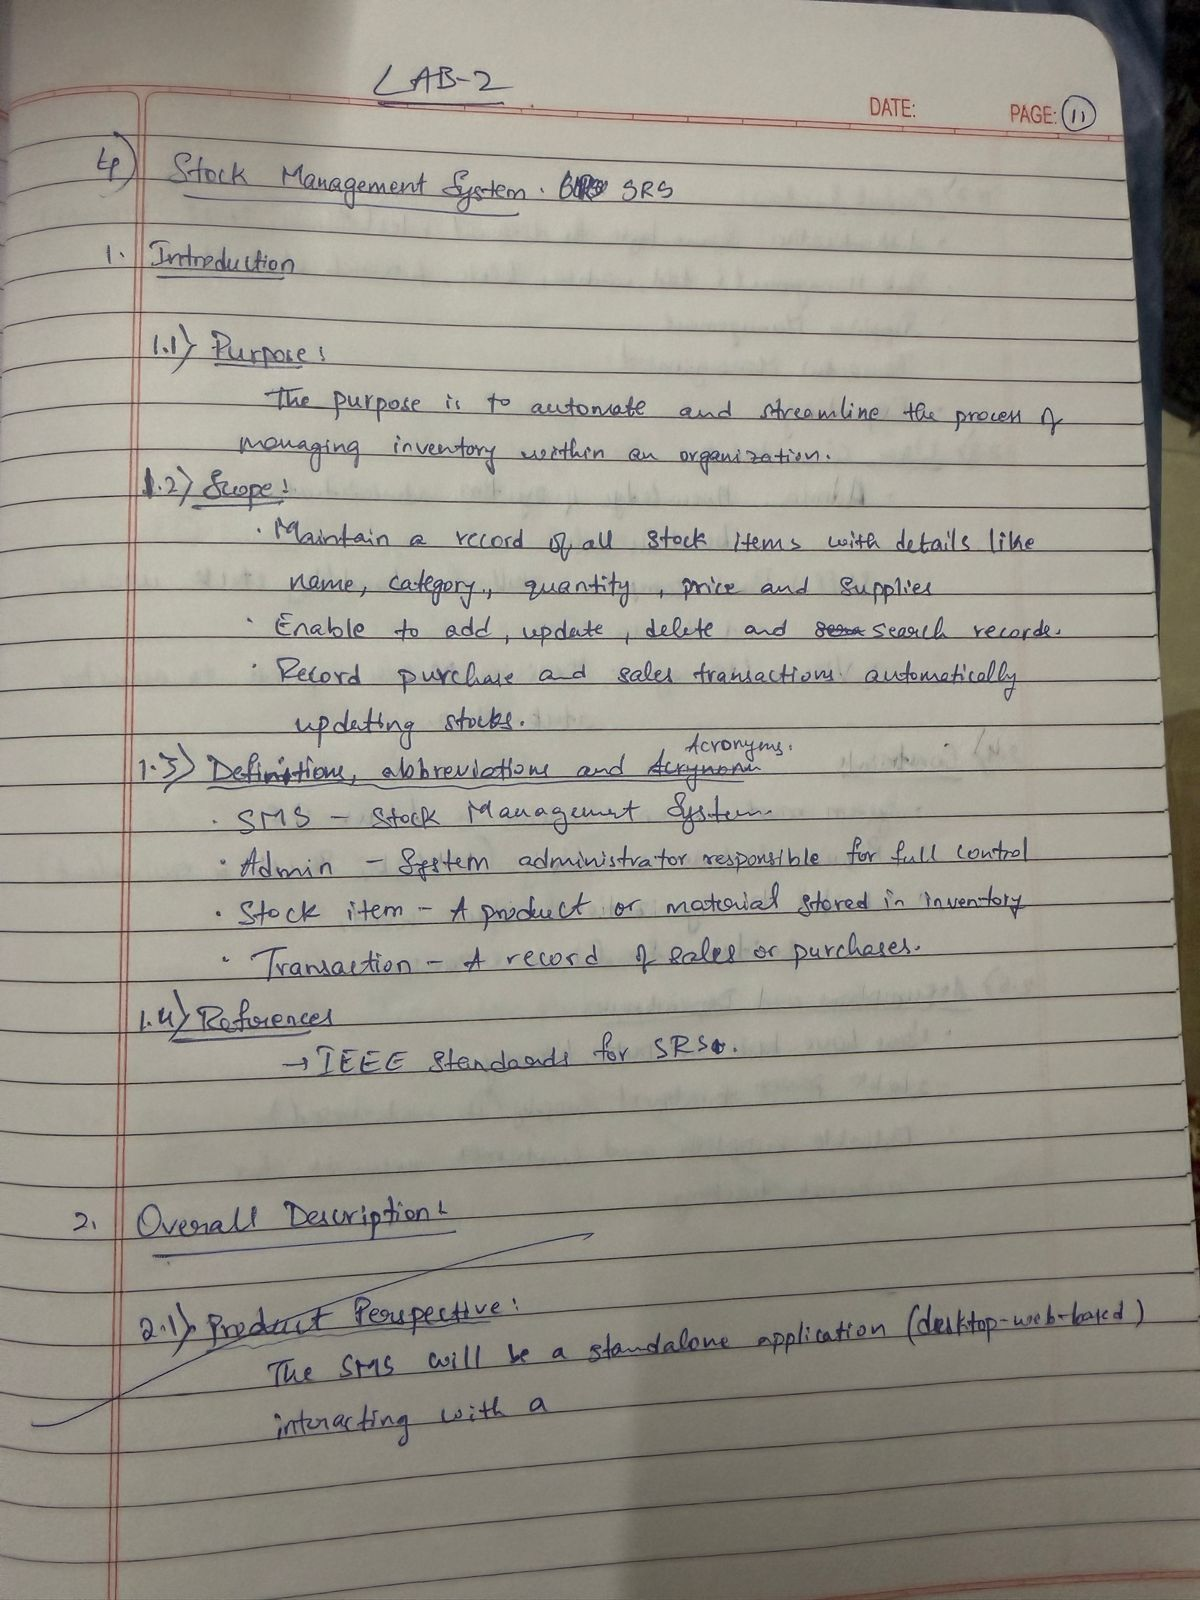 LAB-2
DATE: PAGE: 11
4) Stock Management System. SRS
1. Introduction
1.1) Purpose:
The purpose is to automate and streamline the process of
managing inventory within an organization.
1.2) Scope:
· Maintain a record of all stock items with details like
name, category, quantity, price and supplies
· Enable to add, update, delete and search records.
· Record purchase and sales transactions automatically
updating stocks.
Acronyms.
1.3) Definitions, abbreviations and Acrynom
· SMS - Stock Management System.
· Admin - System administrator responsible for full control
· Stock item - A product or material stored in inventory
· Transaction - A record of sales or purchases.
1.4) References
→ IEEE standards for SRS.
2. Overall Description:
2.1) Product Perspective:
The SMS will be a standalone application (desktop-web-based)
interacting with a